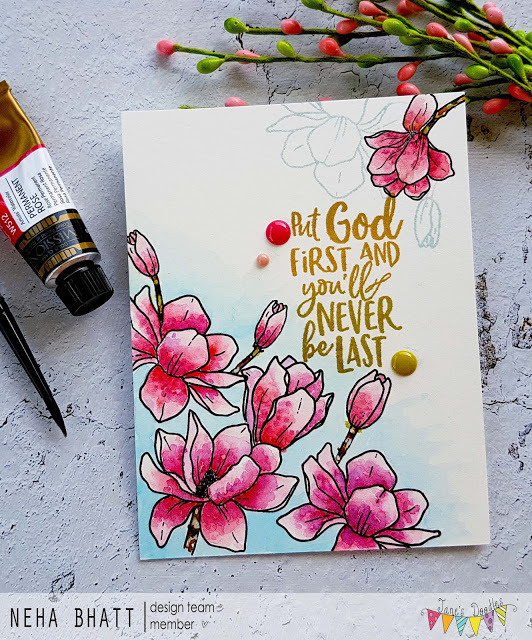 Put God
FIRST AND
you'll
NEVER
be LAST
WS12
PERMANENT
ROSE
NEHA BHATT
design team
member
Jane's Doodles